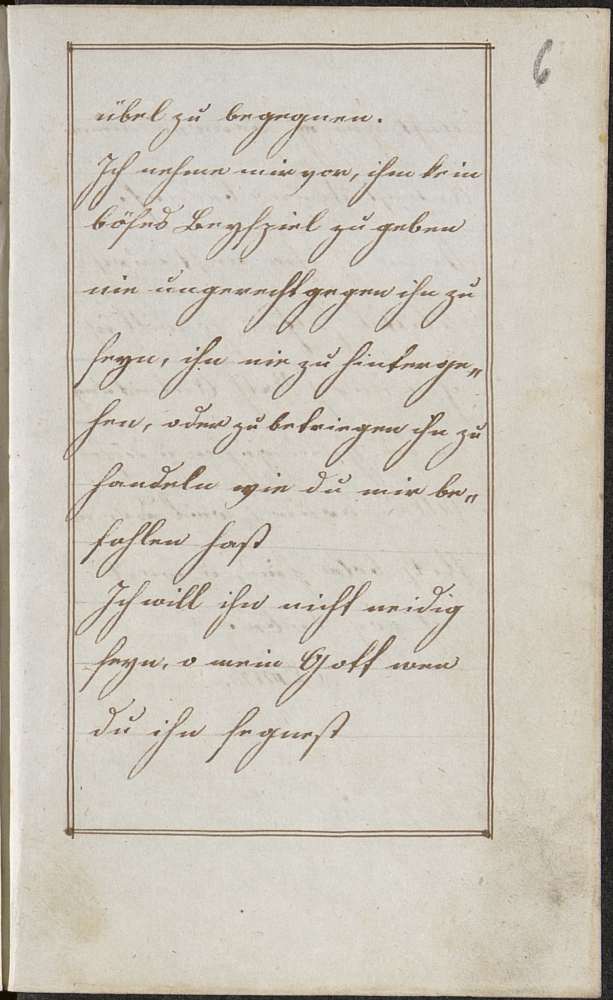 6
übel zu begegnen.
Ich nehme mir vor, ihm kein
böses Beyspiel zu geben
nie ungerecht gegen ihn zu
seyn, ihn nie zu hinterge„
hen, oder zu betriegen ihn zu
handeln wie du mir be„
fohlen hast
Ich will ihn nicht neidig
seyn, o mein Gott wen
du ihn segnest